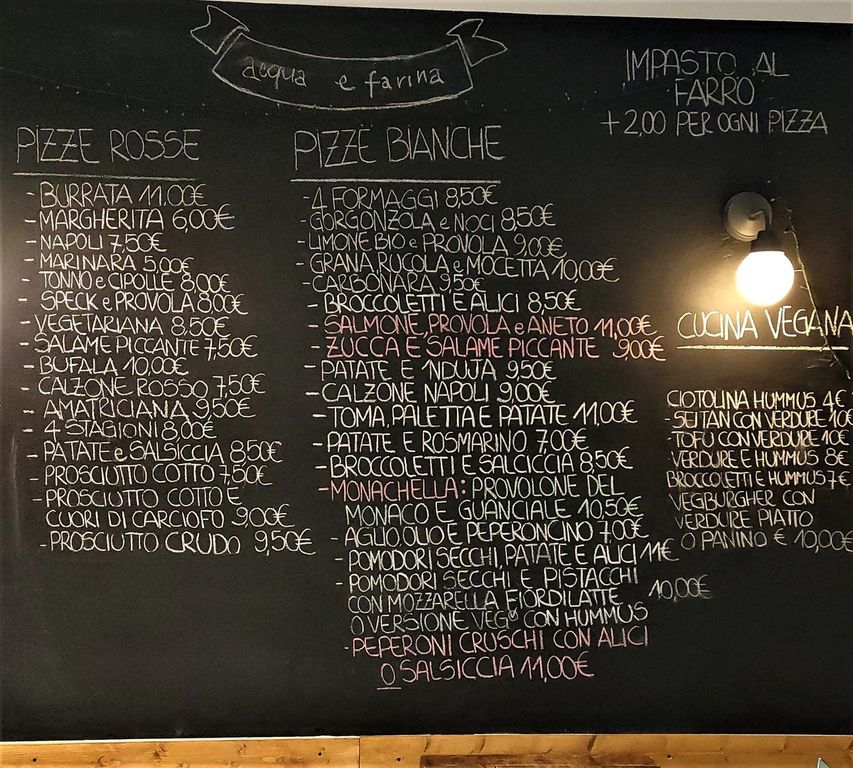 acqua e farina
IMPASTO AL
FARRO
+2,00 PER OGNI PIZZA
PIZZE ROSSE
- BURRATA 11.00€
- MARGHERITA 6,00€
- NAPOLI 7,50€
- MARINARA 5.00€
- TONNO e CIPOLLE 8,00€
- SPECK e PROVOLA 8,00€
- VEGETARIANA 8,50€
- SALAME PICCANTE 7,50€
- BUFALA 10,00€
- CALZONE ROSSO 7,50€
- AMATRICIANA 9,50€
- 4 STAGIONI 8,00€
- PATATE e SALSICCIA 8,50€
- PROSCIUTTO COTTO 7,50€
- PROSCIUTTO COTTO E
CUORI DI CARCIOFO 9,00€
- PROSCIUTTO CRUDO 9,50€
PIZZE BIANCHE
- 4 FORMAGGI 8,50€
- GORGONZOLA e NOCI 8,50€
- LIMONE BIO e PROVOLA 9,00€
- GRANA RUCOLA e MOCETTA 10,00€
- CARBONARA 9,50€
- BROCCOLETTI E ALICI 8,50€
- SALMONE, PROVOLA e ANETO 11,00€
- ZUCCA E SALAME PICCANTE 9,00€
- PATATE E 'NDUJA 9,50€
- CALZONE NAPOLI 9,00€
- TOMA, PALETTA E PATATE 11,00€
- PATATE E ROSMARINO 7,00€
- BROCCOLETTI E SALCICCIA 8,50€
- MONACHELLA: PROVOLONE DEL
MONACO E GUANCIALE 10,50€
- AGLIO, OLIO E PEPERONCINO 7,00€
- POMODORI SECCHI, PATATE E ALICI 11€
- POMODORI SECCHI E PISTACCHI
CON MOZZARELLA FIORDILATTE 10,00€
O VERSIONE VEG CON HUMMUS
- PEPERONI CRUSCHI CON ALICI
O SALSICCIA 11,00€
CUCINA VEGANA
CIOTOLINA HUMMUS 4€
- SEITAN CON VERDURE 10€
- TOFU CON VERDURE 10€
VERDURE E HUMMUS 8€
BROCCOLETTI E HUMMUS 7€
VEGBURGHER CON
VERDURE PIATTO
O PANINO € 10,00€